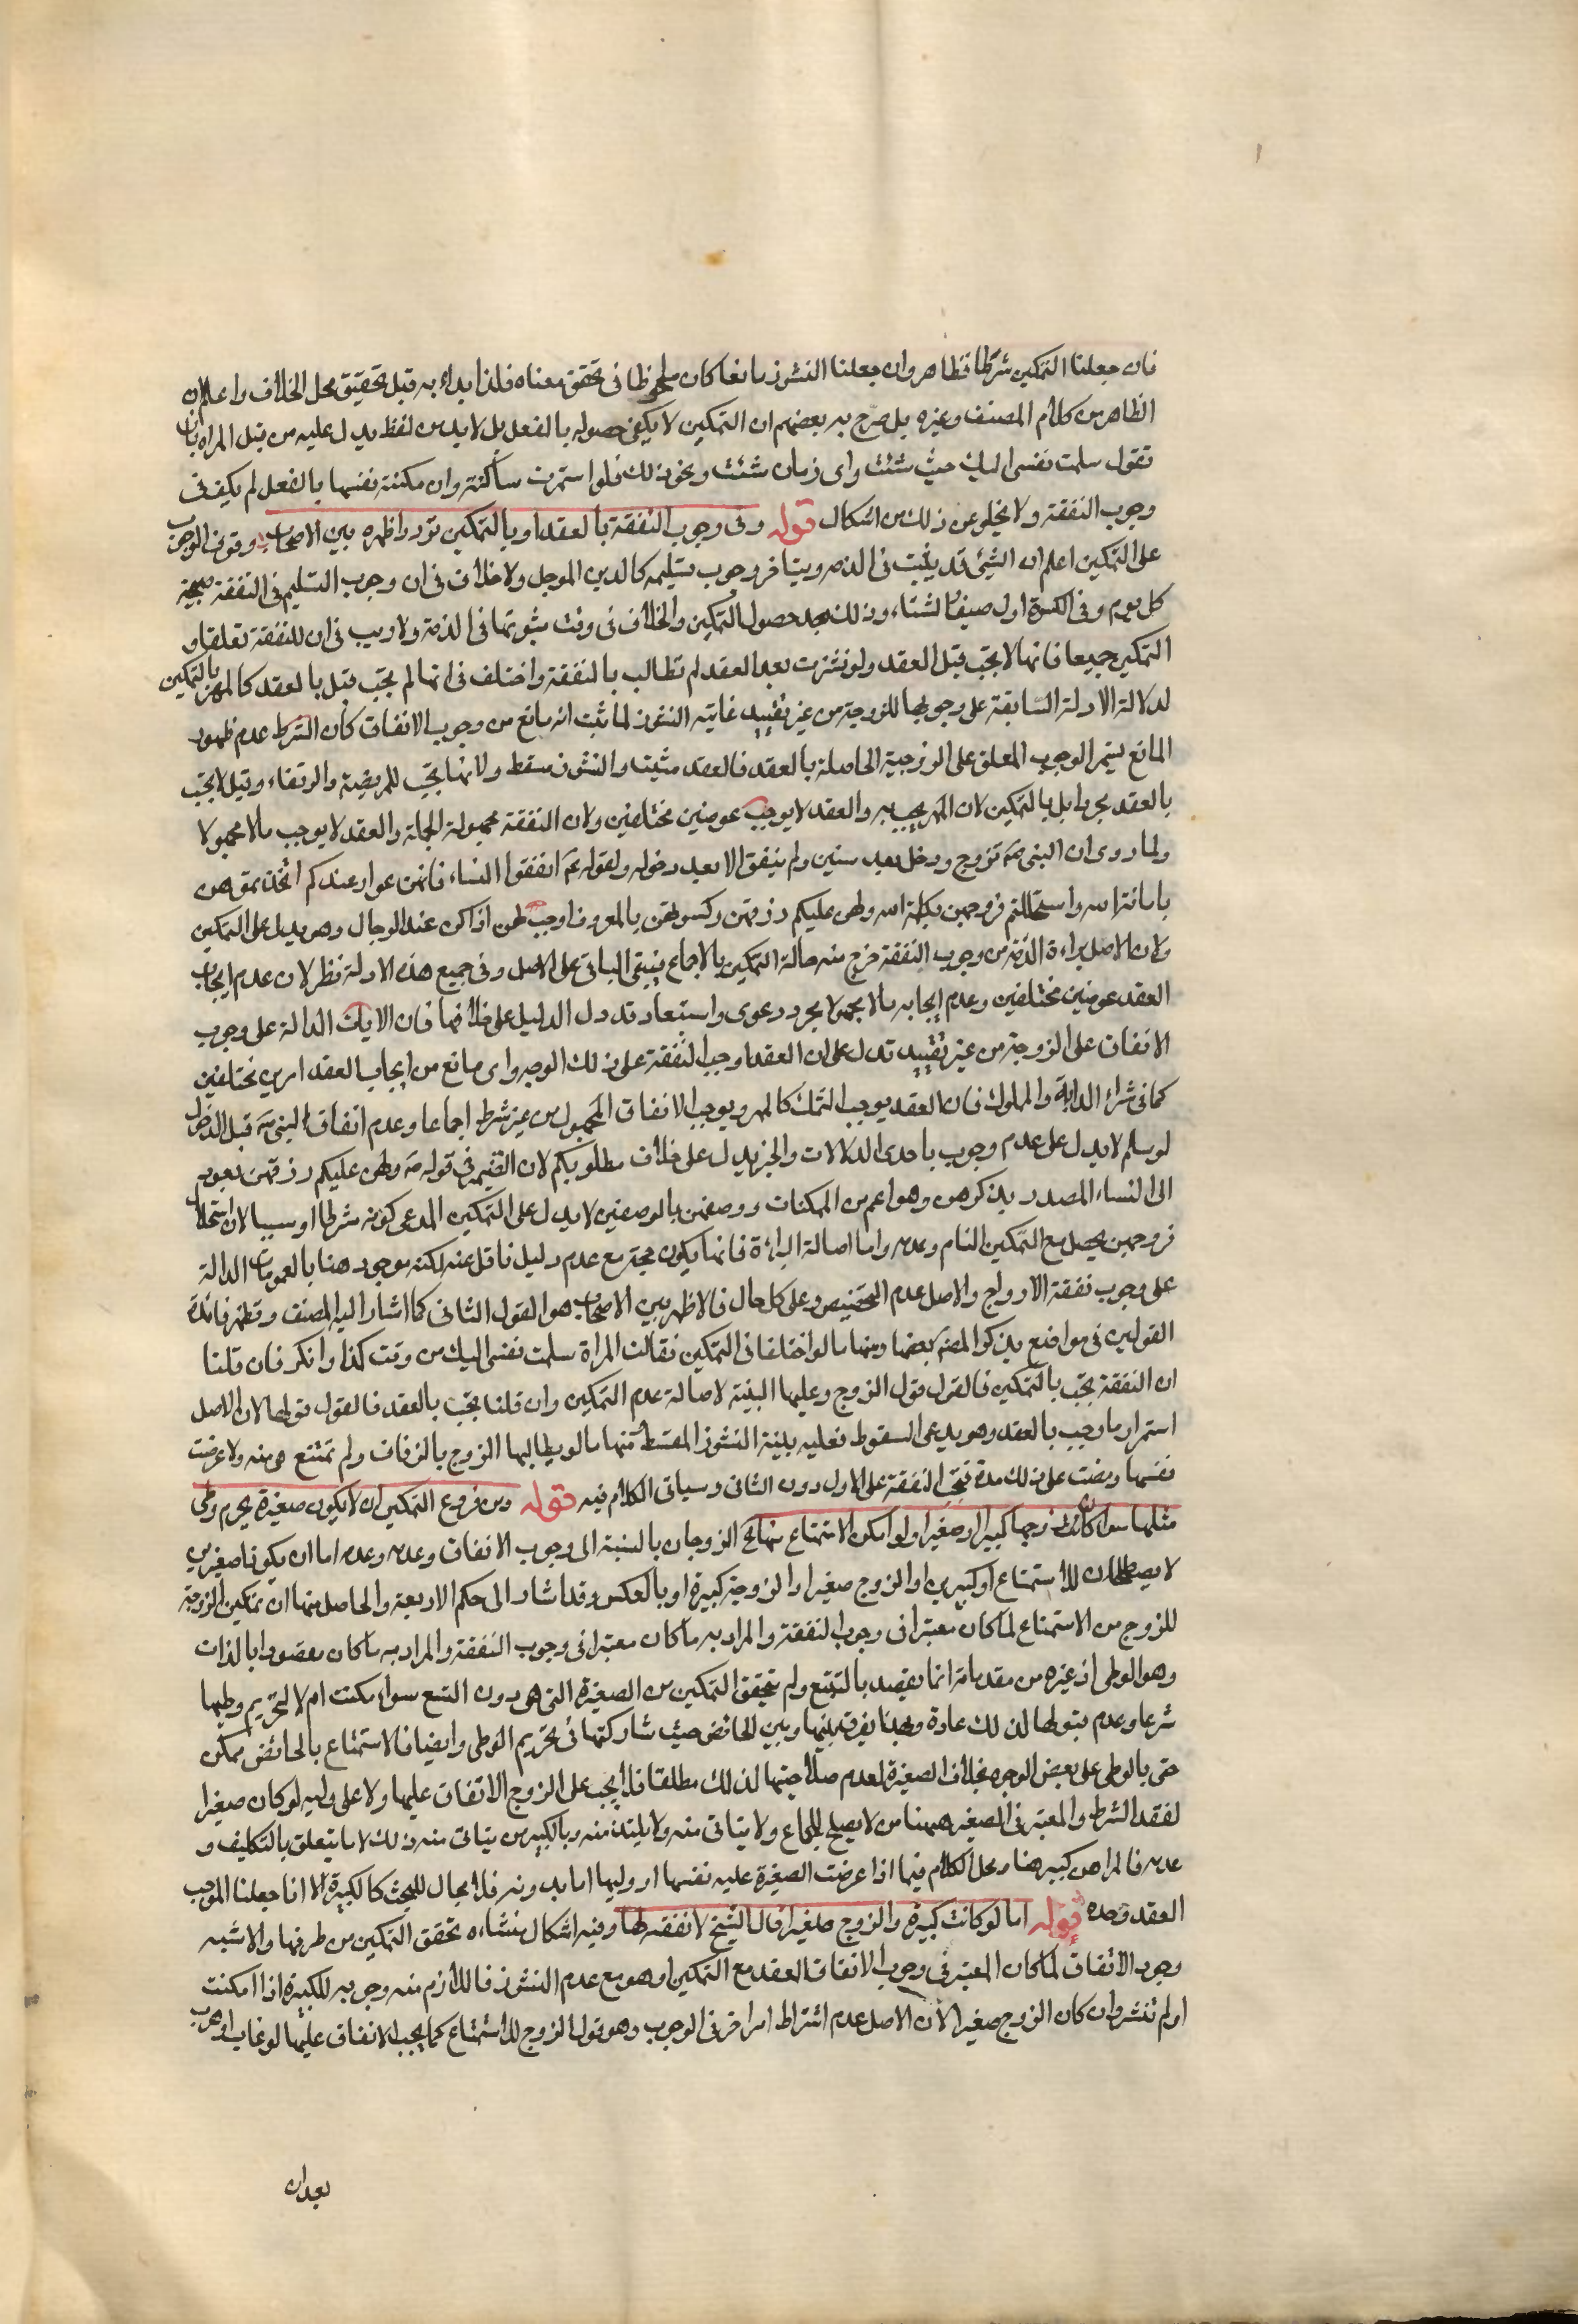 فان جعلنا التمكين شرطا فظاهر وان جعلنا النشوز مانعا كان ملحوظا فى تحقق معناه فلذا بداء به قبل تحقيق محل الخلاف واعلم ان
الظاهر من كلام المصنف وغيره بل صرح به بعضهم ان التمكين لا يكفى حصوله بالفعل بل لابد من لفظ يدل عليه من قبل المراه بان
تقول سلمت نفسى اليك حيث شئت واى زمان شئت ونحو ذلك فلو استمرت ساكتة وان مكنته نفسها بالفعل لم يكف فى
وجوب النفقة ولا يخلو عن ذلك من اشكال قوله وفى وجوب النفقة بالعقد او بالتمكين تردد اظهره بين الاصحاب وقوف الوجوب
على التمكين اعلم ان الشيئ قد يثبت فى الذمه ويتاخر وجوب تسليمه كالدين الموجل ولا خلاف فى ان وجوب التسليم فى النفقة صبيحة
كل يوم وفى الكسوة اول صيف وشتاء وذلك بعد حصول التمكين والخلاف فى وقت ثبوتها فى الذمة ولا ريب فى ان للنفقة تعلقا و
التمكين جميعا فانها لا تجب قبل العقد ولو نشزت بعد العقد لم تطالب بالنفقة واختلف فى انها لم تجب فقيل بالعقد كالمهر بالتمكين
لدلالة الادلة السابقة على وجوبها للزوجة من غير تقييد غايته النشوز لما ثبت انه مانع من وجوب الانفاق كان الشرط عدم ظهور
المانع ليتم الوجوب المعلق على الزوجية الحاصلة بالعقد فالعقد مثبت والنشوز مسقط ولانها تجب للمريضة والرتقاء وقيل لا تجب
بالعقد مجردا بل بالتمكين لان المهر يجب به والعقد لا يوجب عوضين مختلفين ولان النفقة مجهولة الجملة والعقد لا يوجب مالا مجهولا
ولما روى ان النبى صم تزوج ودخل بعد سنين ولم ينفق الا بعد دخوله ولقوله عم اتقوا الله فى النساء فانهن عوار عندكم اتخذتموهن
بامانة الله واستحللتم فروجهن بكلمة الله ولهن عليكم رزقهن وكسوتهن بالمعروف اوجب لهن اذا كن عند الرجال وهو يدل على التمكين
ولان الاصل براءة الذمة من وجوب النفقة خرج منه حالة التمكين بالاجماع فيبقى الباقى على الاصل وفى جميع هذه الادلة نظر لان عدم ايجاب
العقد عوضين مختلفين وعدم ايجابه مالا مجهولا مجرد دعوى واستبعاد قد دل الدليل على خلافها فان الايات الدالة على وجوب
الانفاق على الزوجة من غير تقييد تدل على ان العقد اوجب النفقة على ذلك الوجه واى مانع من ايجاب العقد امرين مختلفين
كما فى شراء الدابة والمملوك فان العقد يوجب الثمن كالمهر ويوجب الانفاق المجهول من غير شرط اجماعا وعدم انفاق النبى صم قبل الدخول
لو سلم لا يدل على عدم وجوب باحدى الدلالات والخبر يدل على خلاف مطلوبكم لان الضمير فى قوله صم ولهن عليكم رزقهن يعود
الى النساء المصدر بذكرهن وهو اعم من الممكنات ووصفهن بالوصفين لا يدل على التمكين المدعى كونه شرطا او سببا لان استحلال
فروجهن يحصل مع التمكين التام وعدمه واما اصالة البراءة فانها يكون حجة مع عدم دليل ناقل عنه لكنه موجود هنا بالعمومات الدالة
على وجوب نفقة الازواج والاصل عدم التخصيص وعلى كل حال فالاظهر بين الاصحاب هو القول الثانى كما اشار اليه المصنف وتظهر فائدة
القولين فى مواضع يذكر المصنف بعضها ومنها ما لو اختلفا فى التمكين فقالت المراة سلمت نفسى اليك من وقت كذا وانكر فان قلنا
ان النفقة تجب بالتمكين فالقول قول الزوج وعليها البينة لاصالة عدم التمكين وان قلنا تجب بالعقد فالقول قولها لان الاصل
استمرار ما وجب بالعقد وهو يدعى السقوط فعليه بينة النشوز المسقط ومنها ما لو يطالبها الزوج بالزفاف ولم تمتنع هى منه ولا عرضت
نفسها ومضت على ذلك مدة فتجب النفقة على الاول دون الثانى وسياتى الكلام فيه قوله ومن فروع التمكين ان لا يكون صغيرة يحرم وطى
مثلها سواء كان زوجها كبيرا او صغيرا ولو امكن الاستمتاع منها بما الزوجان بالنسبة الى وجوب الانفاق وعدمه وعدمه اما ان يكونا صغيرين
لا يصلحان للاستمتاع او كبيرين او الزوج صغيرا والزوجة كبيرة او بالعكس وقد اشار الى حكم الاربعة والحاصل منها ان تمكين الزوجة
للزوج من الاستمتاع لما كان معتبرا فى وجوب النفقة والمراد به ما كان معتبرا فى وجوب النفقة والمراد به ما كان مقصودا بالذات
وهو الوطى اذ غيره من مقدماته انما يقصد بالتبع ولم يتحقق التمكين من الصغيرة التى هى دون التسع سواء مكنت ام لا لتحريم وطيها
شرعا وعدم قبولها لذلك عادة وبهذا يفرق بينها وبين الحائض حيث شاركتها فى تحريم الوطى وايضا فالاستمتاع بالحائض ممكن
حتى بالوطى على بعض الوجوه بخلاف الصغيرة لعدم صلاحيتها لذلك مطلقا فلا يجب على الزوج الانفاق عليها ولا على وليه لو كان صغيرا
لفقد الشرط والمعتبر فى الصغير ههنا من لا يصلح للجماع ولا يتاتى منه ولا يلتذ منه وبالكبير من يتاتى منه ذلك لا ما يتعلق بالتكليف و
عدمه فالمراهق كبير هنا ومحل الكلام فيما اذا عرضت الصغيرة عليه نفسها او وليها اما بدونه فلا مجال للبحث كالكبيرة الا انا جعلنا الموجب
العقد وحده قوله اما لو كانت كبيرة والزوج صغيرا قال الشيخ لا نفقة لها وفيه اشكال منشاءه تحقق التمكين من طرفها والاشبه
وجوب الانفاق لما كان المعتبر فى وجوب الانفاق العقد مع التمكين او هو مع عدم النشوز فاللازم منه وجوبه للكبيرة اذا امكنت
او لم تنشز وان كان الزوج صغيرا لان الاصل عدم اشتراط امر اخر فى الوجوب وهو قبول الزوج للاستمتاع كما يجب الانفاق عليها لو غاب او هرب
بعد ان